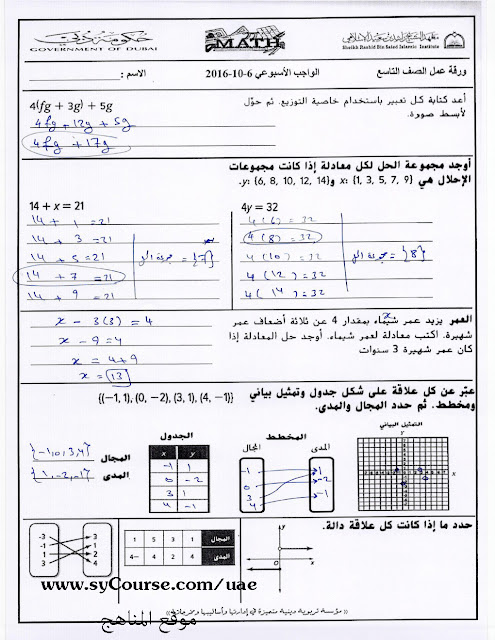 حكومة دبي
GOVERNMENT OF DUBAI
MATH
معهد الشيخ راشد بن سعيد الإسلامي
Sheikh Rashid Bin Saied Islamic Institute
ورقة عمل الصف التاسع
الواجب الأسبوعي 6-10-2016
الاسم :
أعد كتابة كل تعبير باستخدام خاصية التوزيع. ثم حوّل
لأبسط صورة.
4(fg + 3g) + 5g
4fg + 12g + 5g
4fg + 17g
أوجد مجموعة الحل لكل معادلة إذا كانت مجموعات
الإحلال هي x: {1, 3, 5, 7, 9} و y: {6, 8, 10, 12, 14}.
14 + x = 21
14 + 1 = 21
14 + 3 = 21
14 + 5 = 21
14 + 7 = 21
14 + 9 = 21
مجموعة الحل = {7}
4y = 32
4 (6) = 32
4 (8) = 32
4 (10) = 32
4 (12) = 32
4 (14) = 32
مجموعة الحل = {8}
العمر يزيد عمر شيماء بمقدار 4 عن ثلاثة أضعاف عمر
شهيرة. اكتب معادلة لعمر شيماء. أوجد حل المعادلة إذا
كان عمر شهيرة 3 سنوات
x
x - 3(3) = 4
x - 9 = 4
x = 4 + 9
x = 13
عبّر عن كل علاقة على شكل جدول وتمثيل بياني
ومخطط. ثم حدد المجال والمدى.
{(−1, 1), (0, −2), (3, 1), (4, −1)}
التمثيل البياني
المخطط
المدى
المجال
الجدول
x y
-1 1
0 -2
3 1
4 -1
-1
0
3
4
1
-2
-1
المجال {-1,0,3,4}
المدى {1,-2,-1}
حدد ما إذا كانت كل علاقة دالة.
y
x
المجال 3 5 1 1
المدى 4 2 4− 4−
-3
-1
1
2
3
1
2
4
www.syCourse.com/uae
موقع المناهج
((مؤسسة تربوية دينية متميزة في إدارتها وأساليبها ومخرجاتها))